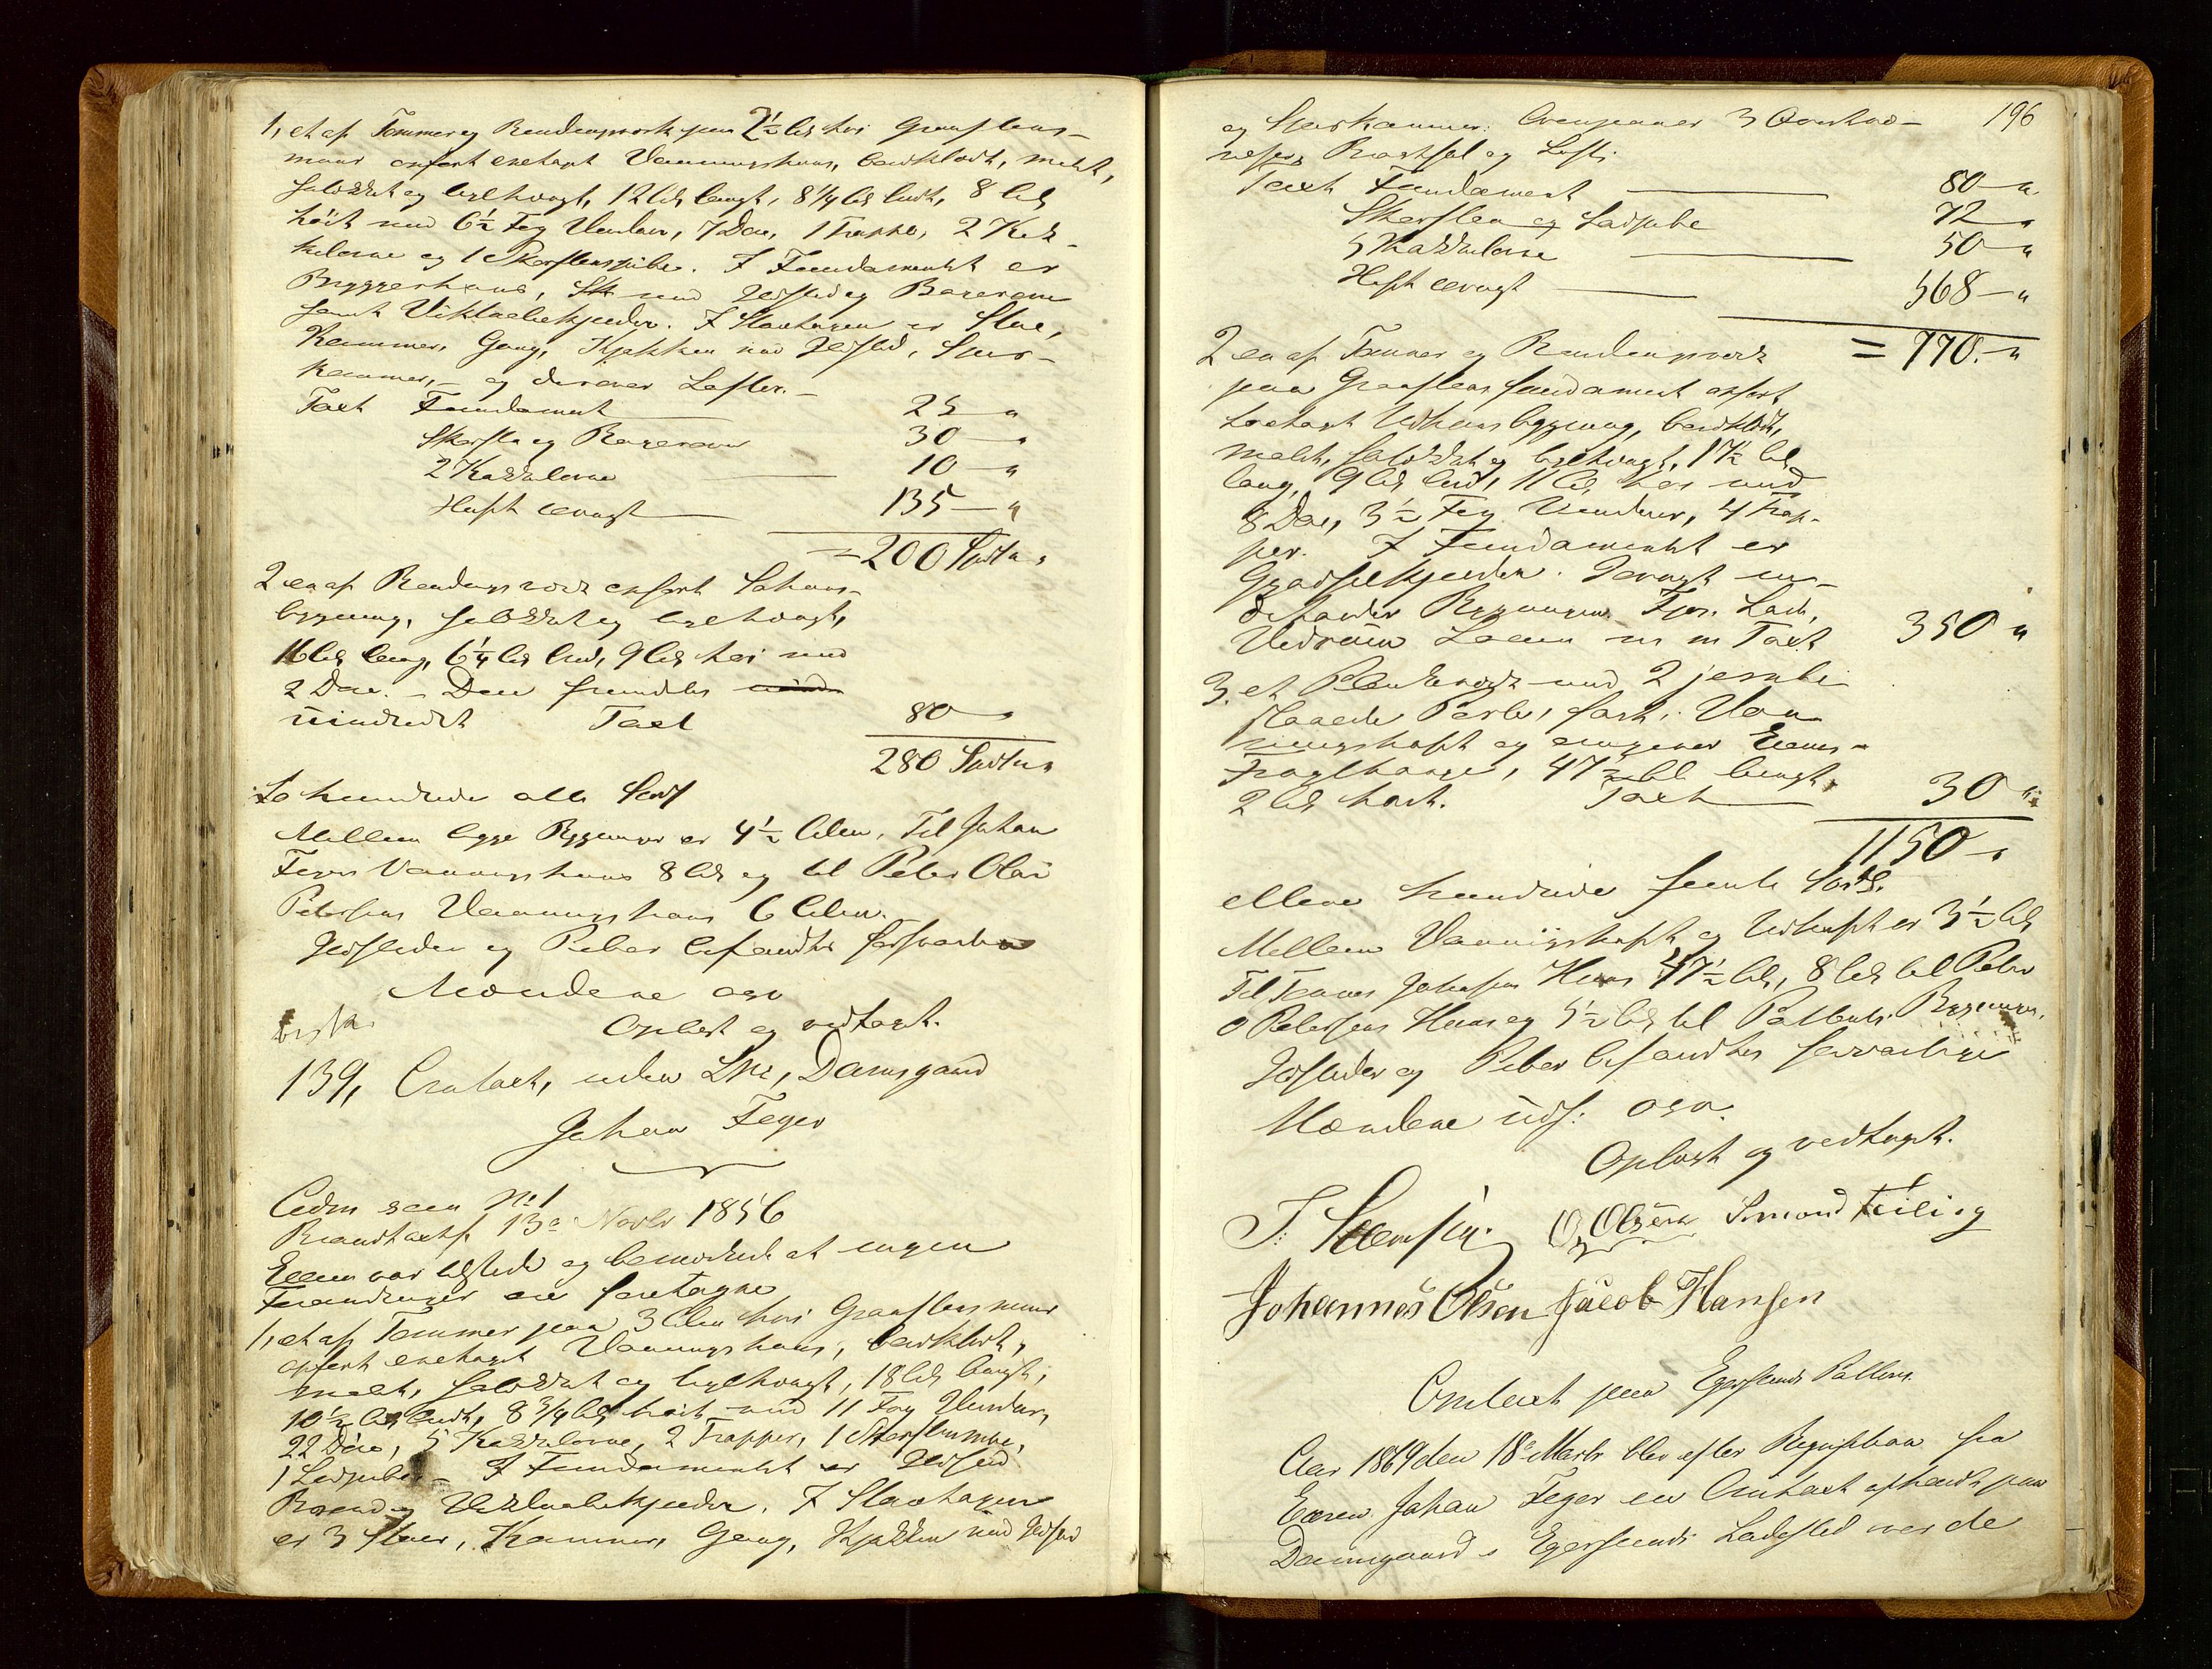 1, et af Tømmer og Bindingsværk paa 2½ al. høi Graasteens-
muur opført eenetages Vaaningshuus, bordklædt, malt,
gulvlagt og teglhængt, 12 al. langt, 8¼ al. bredt, 8 al.
høit med 6½ Fag Vinduer, 7 Døre, 1 Trappe, 2 Kak-
kelovne og 1 Skorsteenspibe. I Fundamentet er
Bryggerhuus, med Ildsted og Bagerovn
samt Viktualiekjelder. I Stueetagen er Stue,
Kammer, Gang, Kjøkken med Ildsted, Spis-
kammer, og derover Lofter.
Taxt Fundament 25 "
Skorsten og Bagerovn 30 "
2 Kakkelovne 10 "
Huset øvrigt 135 "
= 200 Spd "
2 en af Bindingsværk opført Søhuus-
bygning, gulvlagt og teglhængt,
16 al. lang, 6¼ al. bred, 9 al. høi med
2 Døre. – Den fremdeles
uindredet Taxt 80
280 Spd "
To hundrede otti Spd
Mellem begge Bygninger er 4½ Alen. Til Johan
Feyers Vaaningshuus 8 al. og til Peter Olai
Petersens Vaaningshuus 6 Alen.
Ildsteder og Piber befandtes forsvarlige
Mændene osv
Oplæst og vedtaget.
139, Omtaxt, uden No, Damsgaard
Johan Feyer
Cedm samme No 1
Brandtaxtf. 13de Novbr 1856
Eieren var tilstede og bemærkede at ingen
Forandringer ere foretagne
1, et af Tømmer paa 3 Alen høi Graasteens muur
opført eenetages Vaaningshuus, bordklædt,
malt, gulvlagt og teglhængt, 18 al. langt,
10½ al. bredt, 8¾ al. høit med 11 Fag Vinduer,
22 Døre, 5 Kakkelovne, 2 Trapper, 1 Skorsteenspibe,
1 Ledpibe. – I Fundamentet er Ildsted
Brænde og Viktualiekjelder. I Stueetagen
er 3 Stuer, Kammer, Gang, Kjøkken med Ildsted
196
og Spiskammer. Ovenpaa er 3 Qvistvæ-
relser, Mørkstal og Loft.
Taxt Fundament 80 "
Skorsteen og Ledpibe 72 "
5 Kakkelovne 50 "
Huset øvrigt 568 "
= 770. "
2 en af Tømmer og Bindingsværk
paa Graasteens fundament opført
toetages Udhuusbygning, bordklædt,
malt, gulvlagt og teglhængt, 17½ al.
lang, 9 al. bred, 11 al. høi med
8 Døre, 3½ Fag Vinduer, 4 Trap-
per. I Fundamentet er
Gjødselkjelder. Iøvrigt in-
deholder Bygningen Fjøs, Lade,
Vedrum m m Taxt 350 "
3. et Plankeværk med 2 jernbe
slaaede Porte, fast i Vaa-
ningshuset og omgiver Eiens
Frugthauge, 47½ al. langt,
2 al. høit. Taxt 30 "
1150 "
elleve hundrede femti Spd.
Mellem Vaaningshuset og Udhuset er 3½ al.
Til Tønnes Johnsens Huus 47½ al., 8 al. til Peter
O Petersens Huus og 5½ al. til Bygning.
Ildsteder og Piber befandtes forsvarlige
Mændene udf. osv.
Oplæst og vedtaget.
O. Olsen Simond Feilig
Johannes Olsen Jacob Hansen
Omtaxt paa Egersunds
Aar 1869 den 18de Marts blev efter Reqvisition fra
Eieren Johan Feyer en Omtaxt afholdt paa
Damsgaard i Egersunds Ladested over de